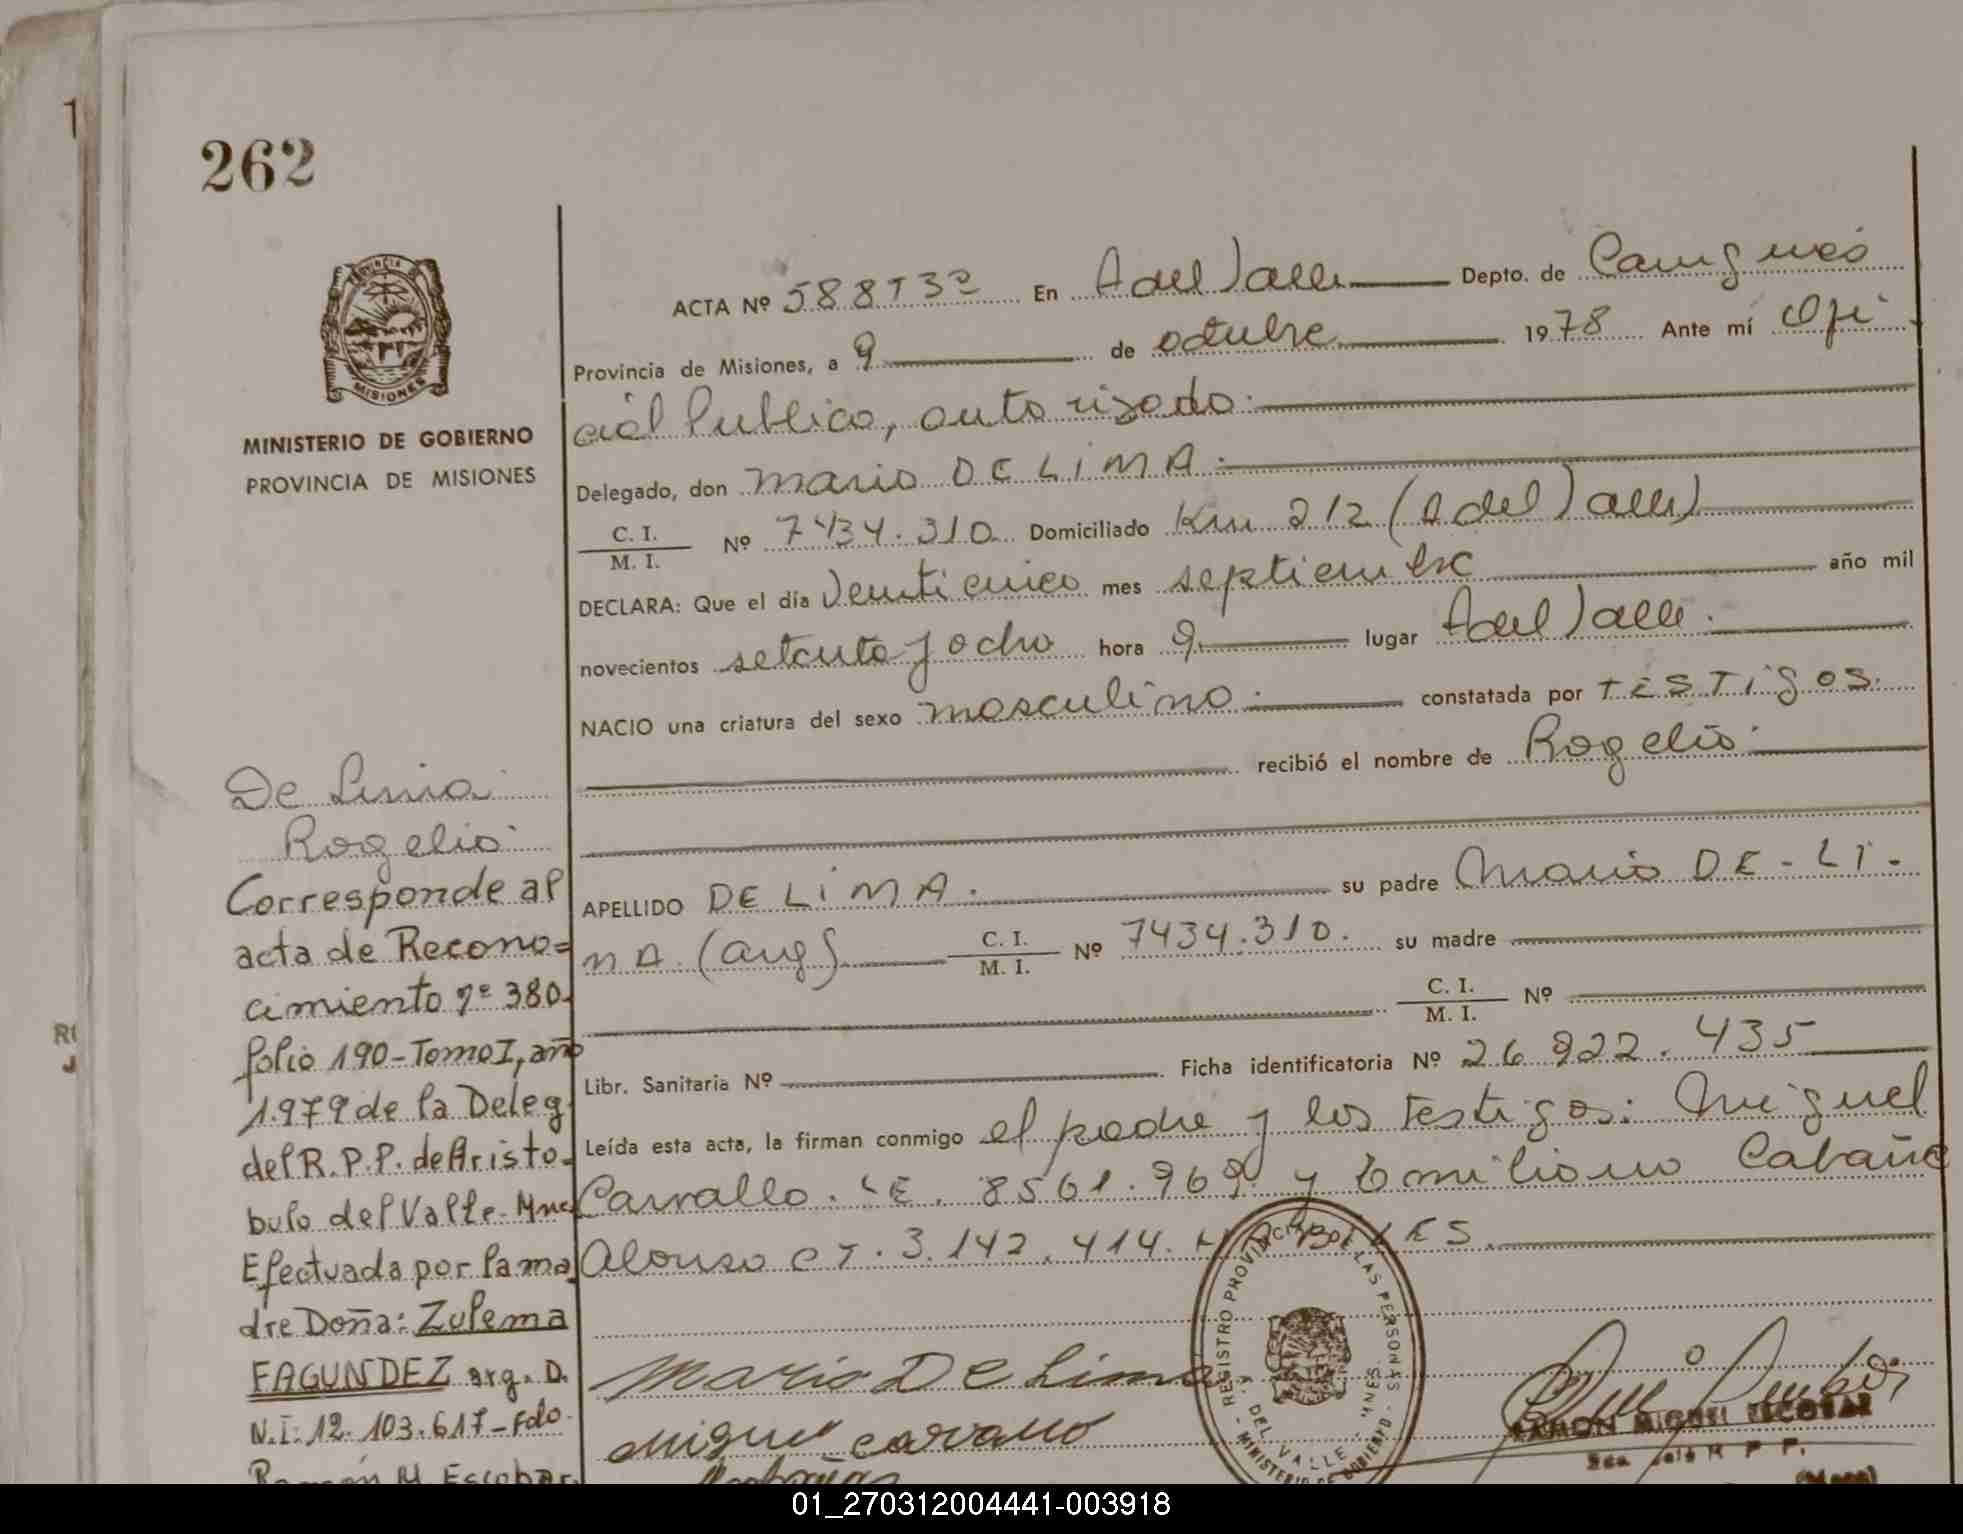 1
262
PROVINCIA D
MISIONES
MINISTERIO DE GOBIERNO
PROVINCIA DE MISIONES
ACTA Nº 588T3º En A del Valle Depto. de Cainguás
Provincia de Misiones, a 9 de octubre 1978 Ante mí Ofi
cial Publico, autorizado.
Delegado, don Mario DE LiMA.
C. I.
M. I.
Nº 7434.310 Domiciliado Km 212 (A del Valle)
DECLARA: Que el día Veinticinco mes septiembre año mil
novecientos setenta y ocho hora 9 lugar A del Valle.
NACIO una criatura del sexo masculino. constatada por TESTigos.
recibió el nombre de Rogelio.
APELLIDO DE LiMA. su padre Mario DE-LI-
MA. (arg) C. I.
M. I.
Nº 7434.310. su madre
C. I.
M. I.
Nº
Libr. Sanitaria Nº Ficha identificatoria Nº 26.922.435
Leída esta acta, la firman conmigo el padre y los testigos: Miguel
Carvallo. LE. 8561.969 y Emiliano Cabaña
Alonso CI. 3.142.414. HABILES.
De Lima
Rogelio.
Corresponde al
acta de Recono=
cimiento nº 380-
folio 190-Tomo I, año
1.979 de la Deleg.
del R.P.P. de Aristo-
bulo del Valle. Mnes
Efectuada por la ma
dre Doña: Zulema
FAGUNDEZ arg. D.
N.I: 12.103.617-Fdo.
Ramón M. Escobar
Mario De Lima
Miguel carvallo
REGISTRO PROVINCIAL DE LAS PERSONAS
A. DEL VALLE - MNES.
MINISTERIO DE GOBIERNO
RAMON MIGUEL ESCOBAR
R P P.
01_270312004441-003918